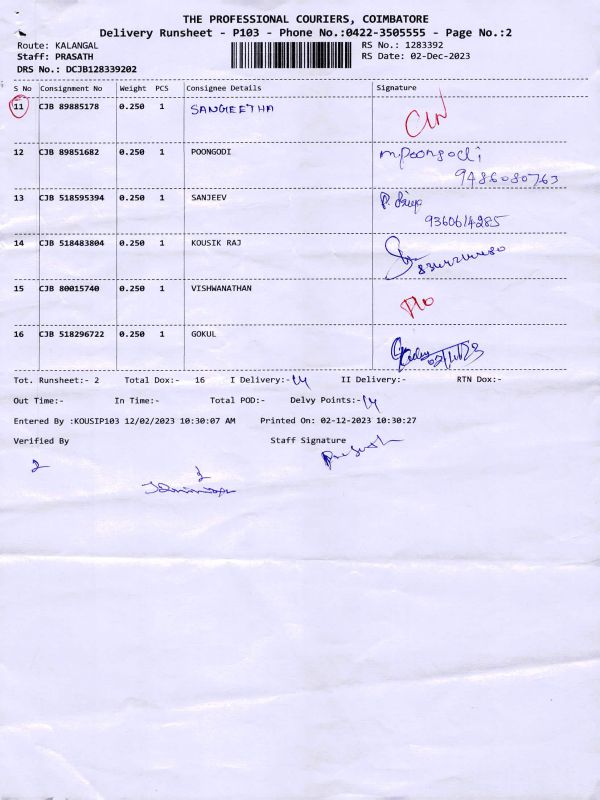 THE PROFESSIONAL COURIERS, COIMBATORE
Delivery Runsheet - P103 - Phone No.:0422-3505555 - Page No.:2
Route: KALANGAL RS No.: 1283392
Staff: PRASATH RS Date: 02-Dec-2023
DRS No.: DCJB128339202
S No Consignment No Weight PCS Consignee Details Signature
11 CJB 89885178 0.250 1 SANGEETHA
12 CJB 89851682 0.250 1 POONGODI m.poongodi
9486080763
13 CJB 518595394 0.250 1 SANJEEV
9360614285
14 CJB 518483804 0.250 1 KOUSIK RAJ
15 CJB 80015740 0.250 1 VISHWANATHAN
16 CJB 518296722 0.250 1 GOKUL
Tot. Runsheet:- 2 Total Dox:- 16 I Delivery:-14 II Delivery:- RTN Dox:-
Out Time:- In Time:- Total POD:- Delvy Points:-14
Entered By :KOUSIP103 12/02/2023 10:30:07 AM Printed On: 02-12-2023 10:30:27
Verified By Staff Signature
2 Prasath
2